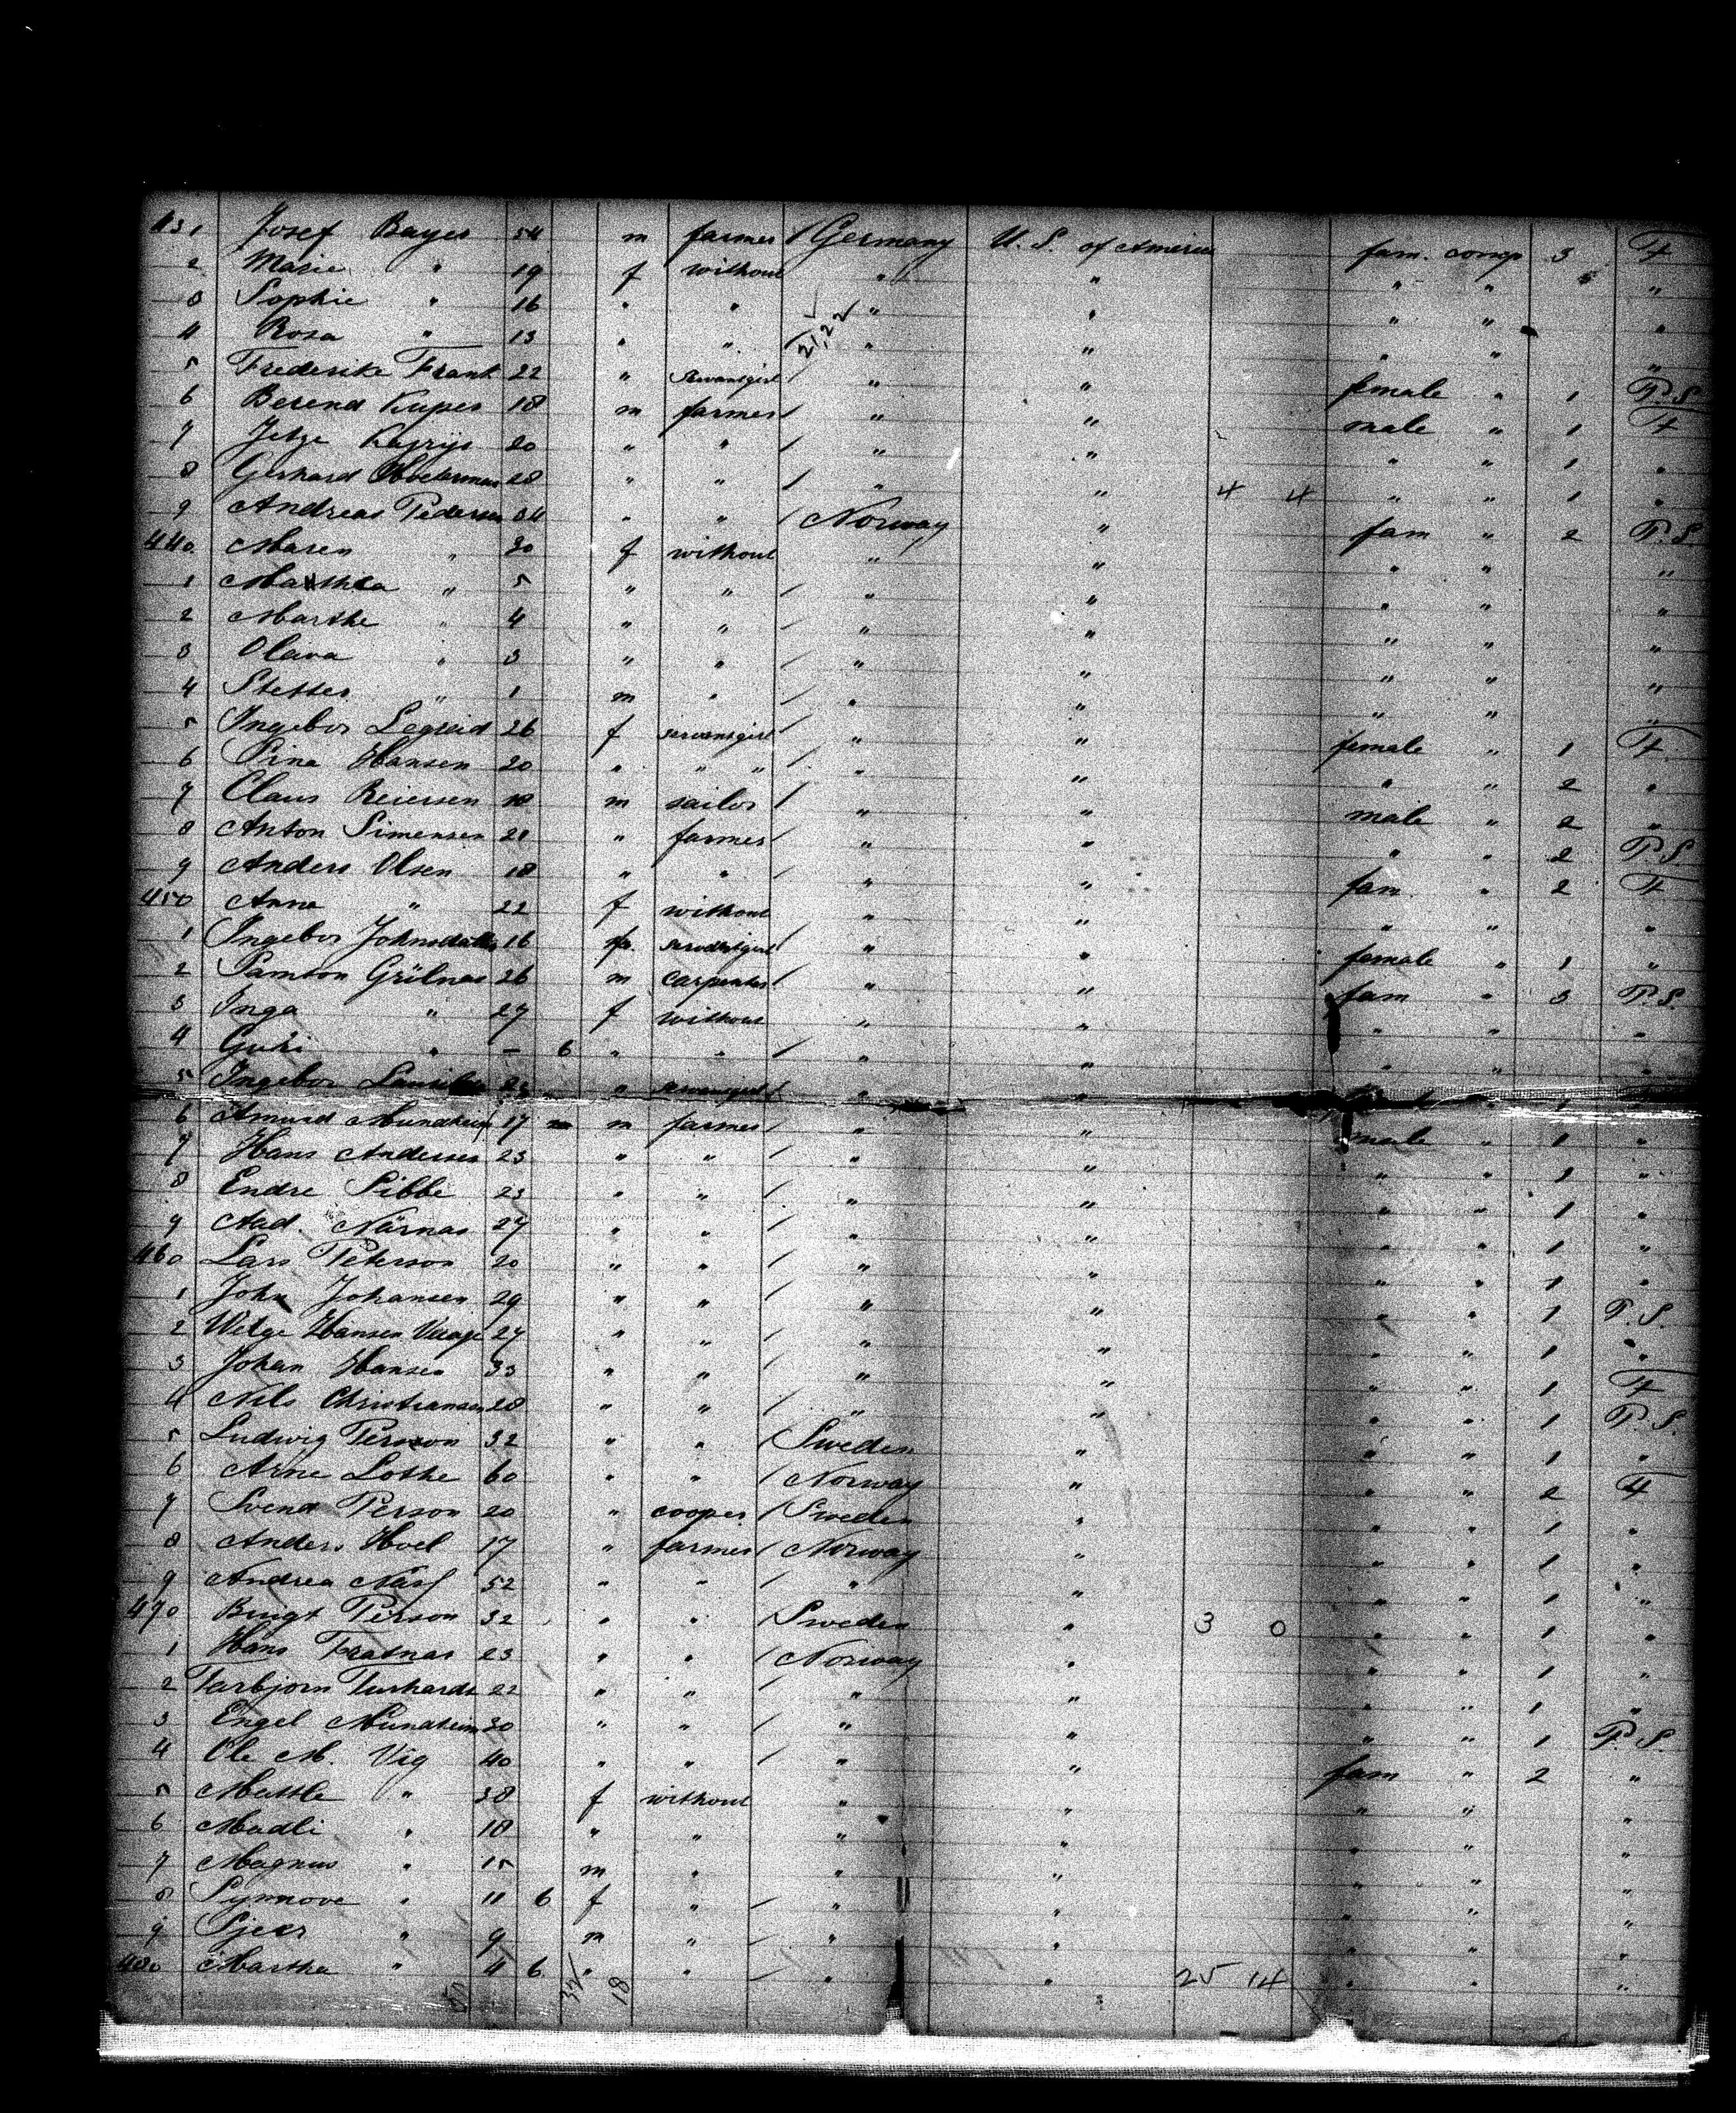 431 Josef Bayer 54 m farmer / Germany U. S. of America fam. comp 3 F
2 Marie " 19 f without " " " " "
3 Sophie " 16 " " " " " " "
4 Rosa " 13 " " 21,22 " " " " "
5 Frederike Frank 22 " servantgirl / " " female " 1 P.S.
6 Berend Kuper 18 m farmer / " " male " 1 F
7 Jelze 20 " " / " " " " 1 "
8 Gerhard 28 " " / " " 4 4 " " 1 "
9 Andreas Pedersen 34 " " / Norway " fam " 2 P.S.
440 Maren " 30 f without " " " " "
1 " 5 " " / " " " " "
2 Marthe " 4 " " / " " " " "
3 Olava " 3 " " / " " " " "
4 Steffer " 1 m " / " " " " "
5 Ingebor Legreid 26 f servantgirl / " " female " 1 F.
6 Pina Hansen 20 " " " / " " " " 2 "
7 Claus Reiersen 18 m sailor / " " male " 2 "
8 Anton Simensen 21 " farmer / " " " " 2 P.S
9 Anders Olsen 18 " " / " " fam " 2 F
450 Anna " 22 f without " " " " "
1 Ingebor 16 f servantgirl / " " female " 1 "
2 Samson Grölnas 26 m carpenter / " " fam " 3 P.S.
3 Inga " 27 f without " " " " "
4 Guri " - 6 " " / " " " " "
5 Ingebor 23 " servantgirl / " " " 1
6 Amund Mundheim 17 m farmer / " " male " 1 "
7 Hans Andersen 23 " " / " " " " 1 "
8 Endre Sibbe 23 " " / " " " " 1 "
9 Aad. Närnas 27 " " / " " " " 1 "
460 Lars Peterson 20 " " / " " " " 1 "
1 John Johansen 29 " " / " " " " 1 P. S.
2 Welge Hansen 27 " " / " " " " 1 "
3 Johan Hansen 33 " " / " " " " 1 F
4 Nils Christiansen 28 " " / " " " " 1 P. S.
5 Ludwig Persson 32 " " / Sweden " " " 1 "
6 Arne Lothe 60 " " / Norway " " " 2 F
7 Svend Person 20 " cooper / Sweden " " " 1 "
8 Anders Hoel 17 " farmer / Norway " " " 1 "
9 Andrea Näss 52 " " / " " " " 1 "
470 Bengt Person 32 " " / Sweden " 3 0 " " 1 "
1 Hans Fratnas 23 " " / Norway " " " 1 "
2 Tarbjorn 22 " " / " " " " 1 "
3 Engel Mundheim 30 " " / " " " " 1 P. S.
4 Ole M. Vig 40 " " / " " fam " 2 "
5 " 38 f without " " " " "
6 Madli " 18 " " " " " " "
7 Magnus " 15 m " " " " " "
8 Synnove " 11 6 f " / " " " " "
9 " 9 m " / " " " " "
480 Martha " 4 6 " " / " " 25 14 " " "
18